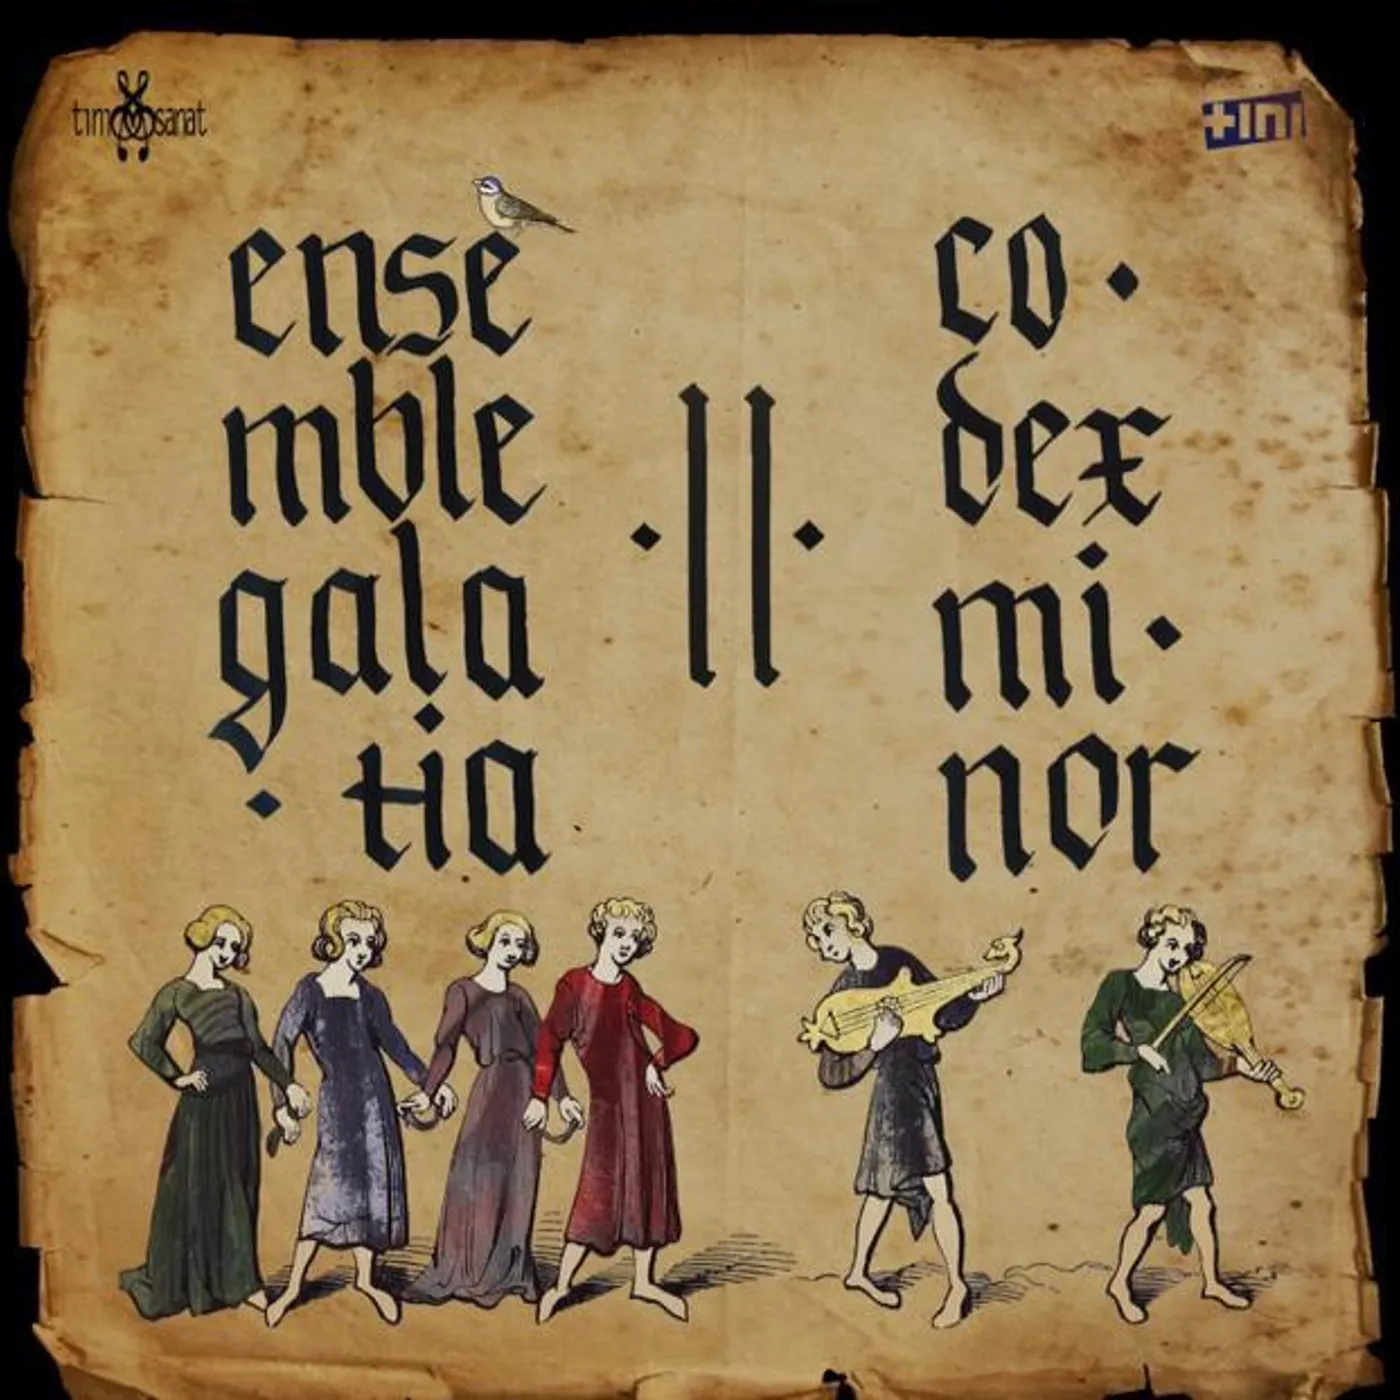 timsanat
+ini
ense
mble
gala
· tia
· || ·
co ·
dex
mi ·
nor